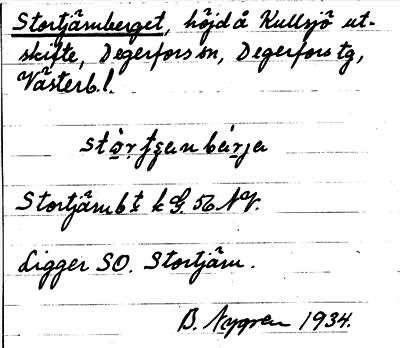 Stortjärnberget, höjd å Kullsjö ut-
skifte, Degerfors sn, Degerfors tg,
Västerb. l.
Stortjärnbt k G. 56 NV.
Ligger SO. Stortjärn.
B. Nygren 1934.